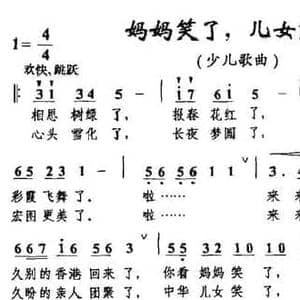 妈妈笑了，儿女
1=4/4
（少儿歌曲）
欢快、跳跃
3 1 3 4 5 - | i 7 6 i 5 -
相思 树绿 了， 报春 花红 了，
心头 雪化 了， 长夜 梦圆 了，
6 5 2 3 1 - | 5 6 5 6 6 - | 3.
彩霞 飞舞 了。 啦…… 啦…… 来
宏图 更美 了。 啦…… 啦…… 来
6 6 7 i 6 5 6 3 | 5 5 3 2 1 0 1 0
久别的 香港 回来 了， 你看 妈妈 笑 了，
久盼的 亲人 团聚 了， 中华 儿女 笑 了，